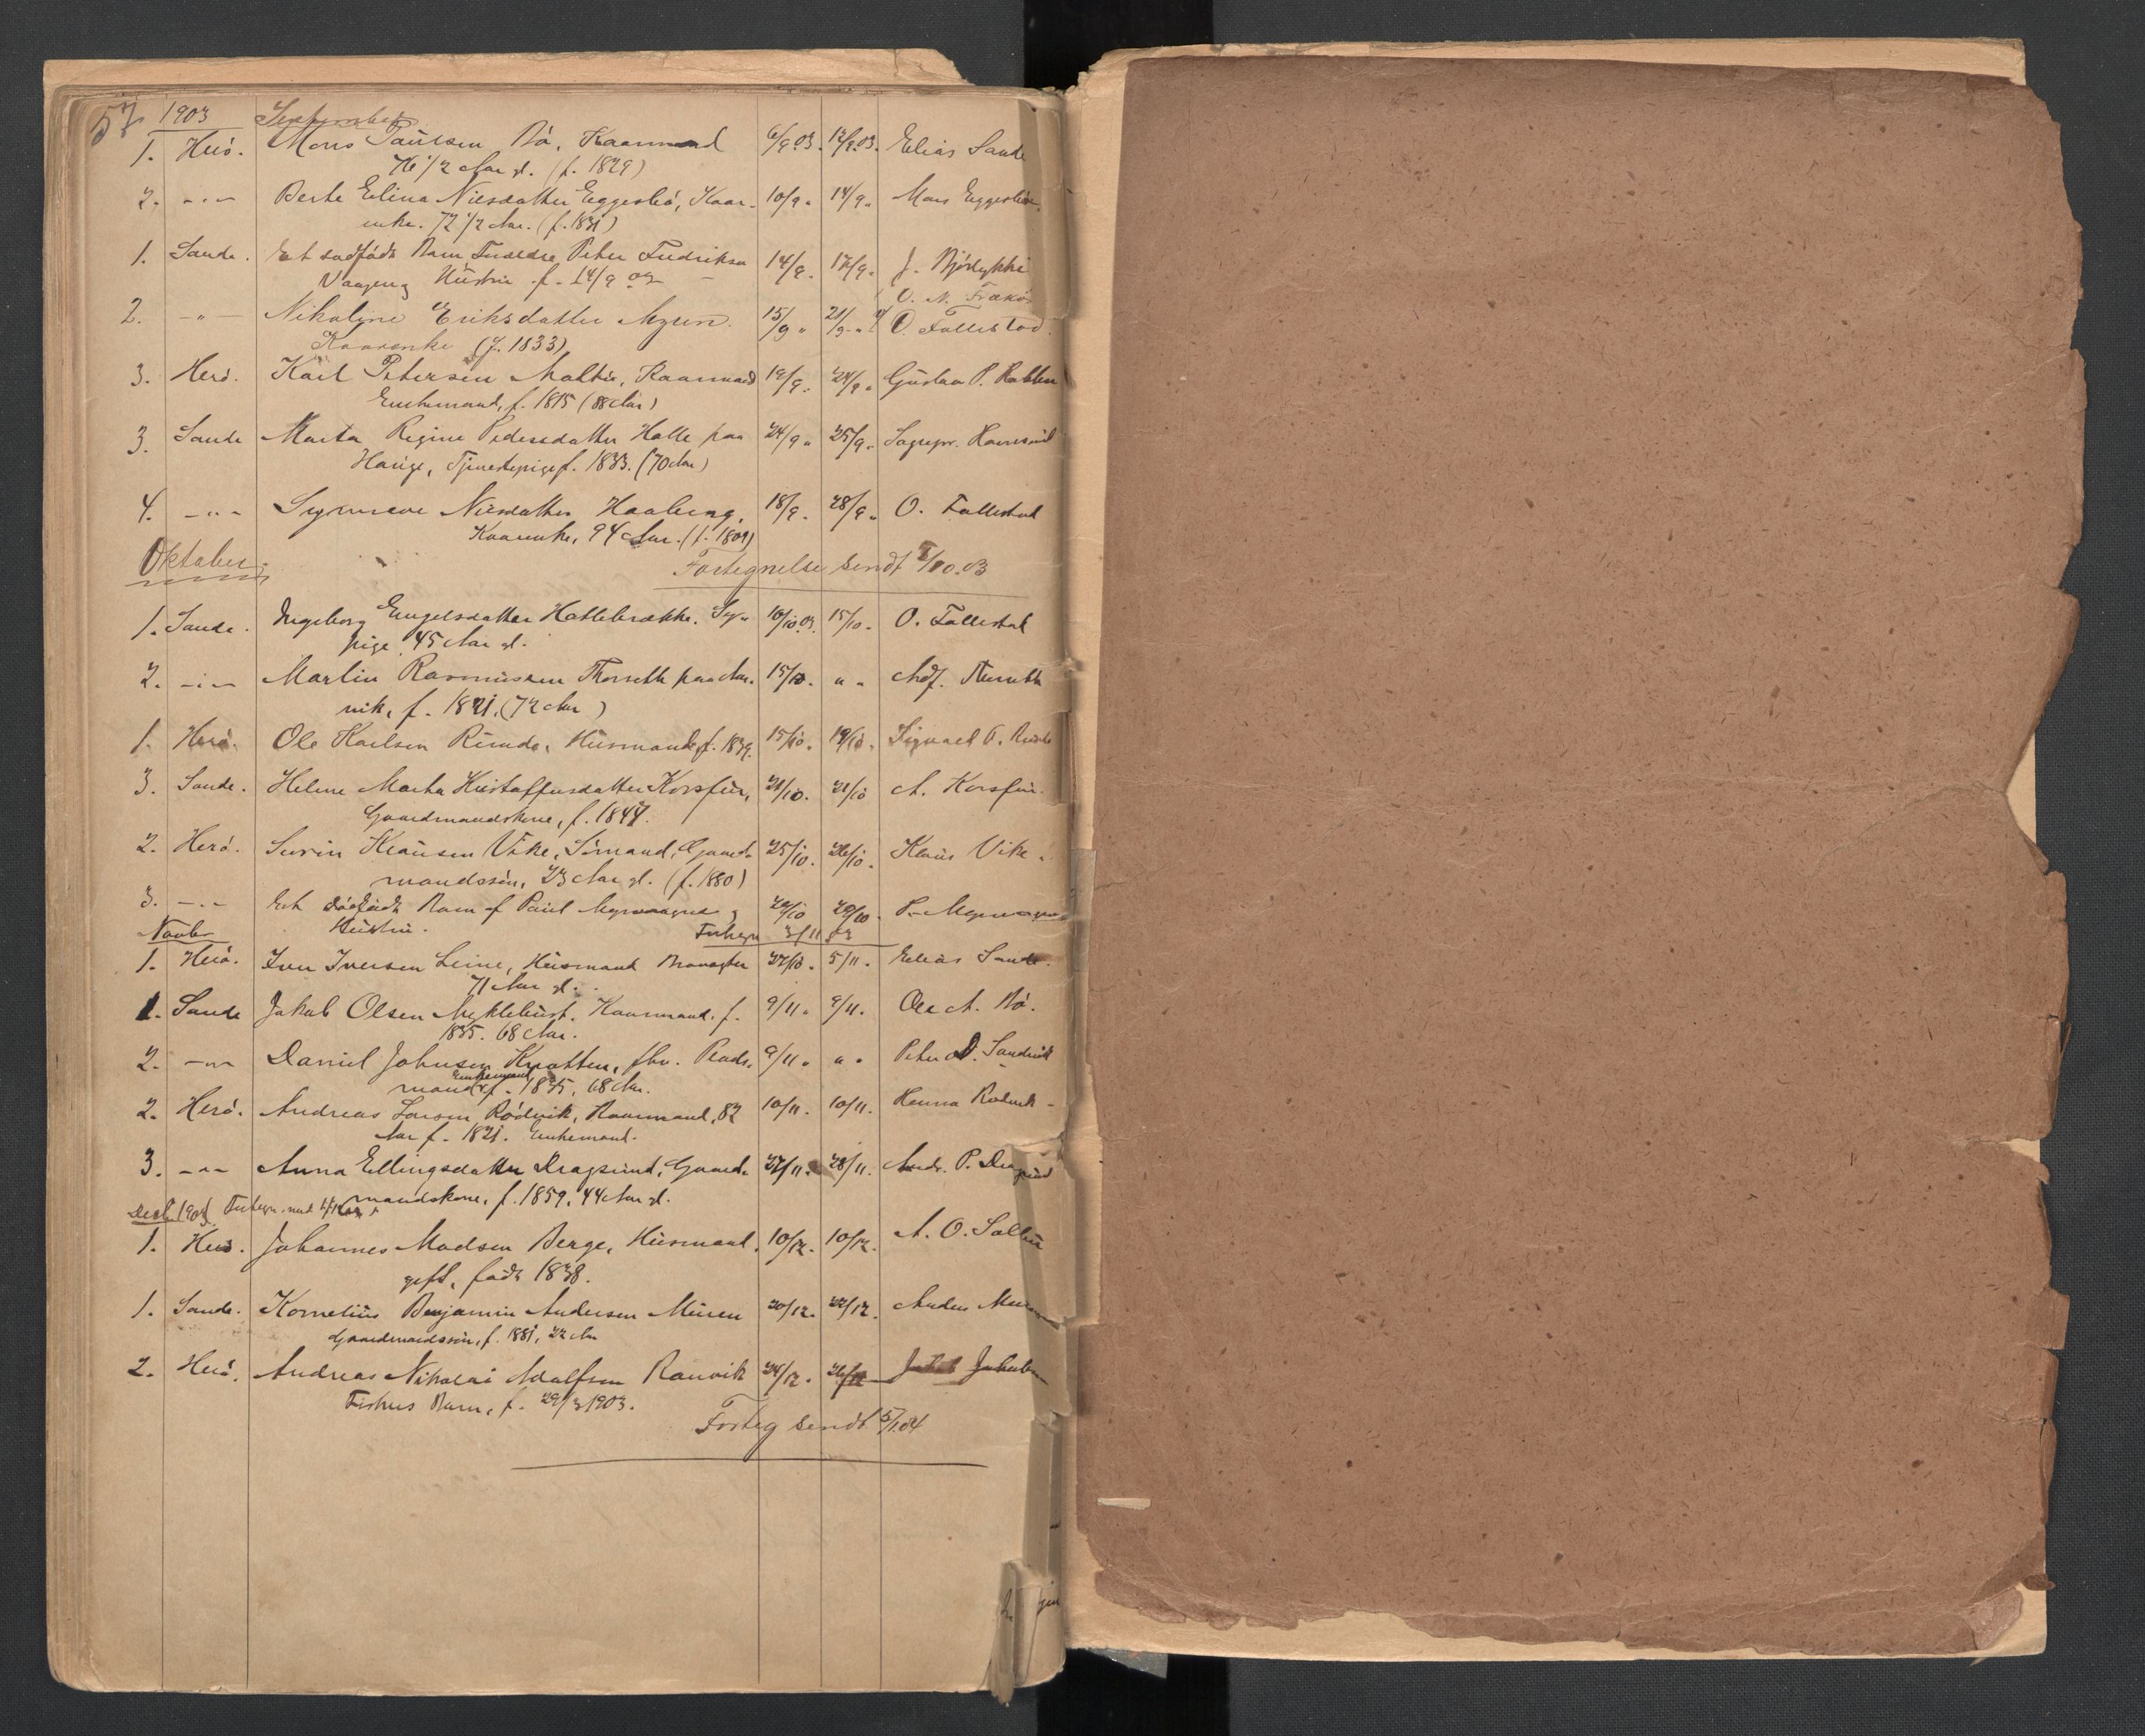 57 1903 September
1. Herö. Mons Paulsen Bö, Kaarmand 6/9 03. 12/9 03. Elias Sande
76 1/2 Aar gl. (f. 1829)
2. -"- Berte Elina Nilsdatter Eggesbö, Kaar- 10/9 " 14/9 " Mons Eggesbö
enke. 72 1/2 Aar. (f. 1831)
1. Sande. Et dödfödt Barn Peter Fredriksen 14/9 " 17/9 " J. Björlykke
Vaagen og Hustru f. 14/9 03
O. N. Frækö
2. -"- Nikoline Eriksdatter Myren. 15/9 " 21/9 " O. Follestad.
Kaarenke (f. 1833)
3. Herö. Karl Petersen Moltu, Kaarmand 19/9 " 24/9 " Gustav P. Rabben
Enkemand, f. 1815 (88 Aar)
3. Sande Marta Regine Pedersdatter Halle paa 24/9 " 25/9 " Sognepr. Havnsund
Hauge, Tjenestepige f. 1833. (70 Aar)
4. -"- Synneve Nilsdatter Haaberg, 18/9 " 28/9 " O. Follestad
Kaarenke, 94 Aar. (f. 1809)
Oktober. Fortegnelse sendt 8/10.03
1. Sande. Ingeborg Engelsdatter Hallebrække. Sy- 10/10 03. 15/10 " O. Follestad
pige 45 Aar gl.
2. -"- Martin Rasmussen Thorseth paa Aar- 15/10 " " " Adf. Thorseth
vik, f. 1831. (72 Aar)
1. Herö. Ole Karlsen Runde, Husmand, f. 1839. 15/10 " 19/10 " Sigvald O. Runde
3. Sande. Helene Marta Kristoffersdatter Korsfur, 21/10 " 21/10 A. Korsfur.
Gaardmandskone, f. 1847.
2. Herö. Severin Klausen Vike, Sömand, Gaard- 25/10 " 26/10 " Klaus Vike
mandssön, 23 Aar gl. (f. 1880)
3. -"- Et dödfödt Barn af Paul Myrvaagnes og 29/10 29/10 " P. Myrvaagnes
Novbr Hustru. Fortegn 3/11 03
1. Herö. Iver Iversen Leine, Husmand 27/10 " 5/11 " Elias Sande.
71 Aar gl.
1. Sande Jakob Olsen Myklebust. Kaarmand. f. 9/11 " 9/11 " Ole A. Bö.
1835. 68 Aar.
2. -"- Daniel Johnsen Knotten, fhv. Plads- 9/11 " " " Peter D. Sandvik
Enkemand
mand f. 1835, 68 Aar.
2. Herö. Andreas Larsen Rödvik, Kaarmand, 82 10/11 " 10/11 " Hanna Rödvik
Aar f. 1821. Enkemand.
3. -"- Anna Ellingsdatter Dragsund, Gaard- 27/11 " 28/11 " Andr. P. Dragsund
mandskone, f. 1859, 44 Aar gl.
Decb. 1903 Fortegn. send
1. Herö. Johannes Madsen Berge, Husmand, 10/12 " 10/12 " A. O. Saltre
gift, födt 1838.
1. Sande. Kornelius Benjamin Andersen Muren 20/12 " 22/12 " Anders Muren
Gaardmandssön, f. 1881, 22 Aar
2. Herö. Andreas Nikolai Adolfsen Ranvik 24/12 " 26/12 Jakob Jakobsen
Fiskers Barn, f. 29/3 1903.
Forteg sendt 5/1.04